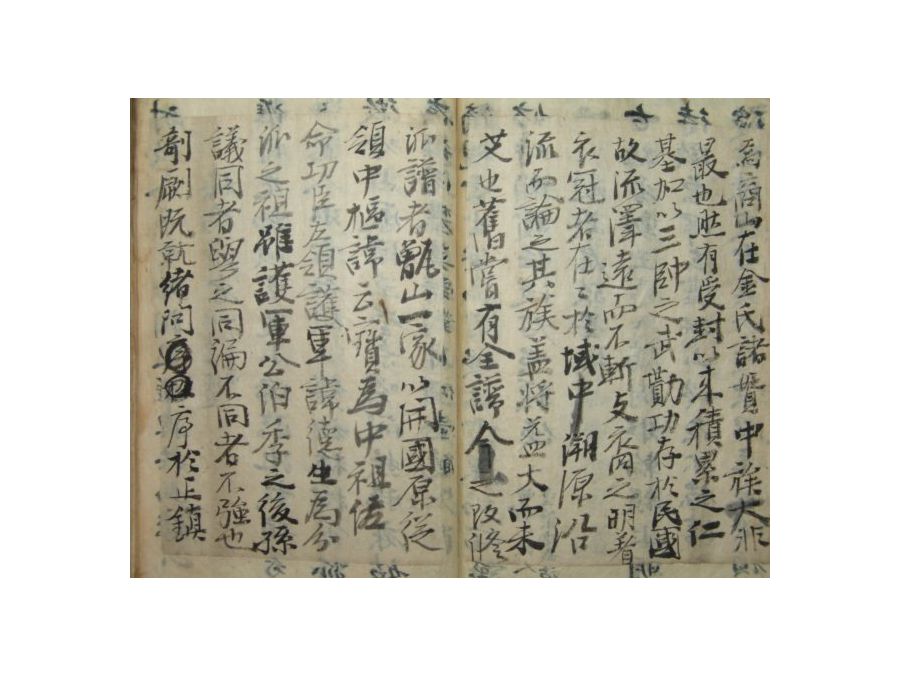 爲商山在金氏諸貫中族大非
最也然有受封以來積累之仁
基加以三帥之武勳功存於民國
故流澤遠而不斬文裔之明着
衣冠者在〻於域中溯源沿
流而論之其族盖將益大而未
艾也舊嘗有全譜今之改修
派譜者甑山一家以開國原從
領中樞諱云寶爲中祖佐
命功臣左領護軍諱德生爲分
派之祖雖護軍公伯季之後孫
議同者與之同編不同者不強也
剞劂旣就緖問序於正鎮